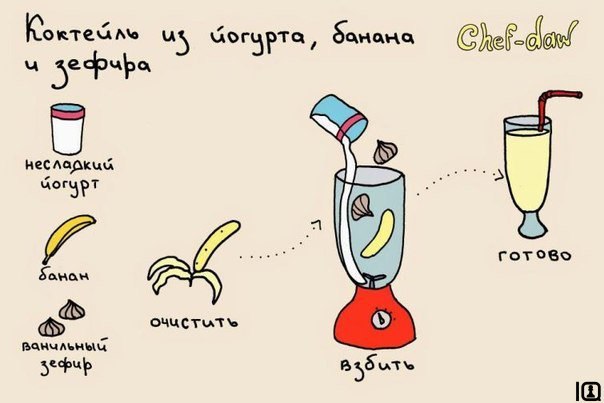 Коктейль из йогурта, банана
и зефира
Chef-daw
несладкий
йогурт
банан
ванильный
зефир
очистить
взбить
готово
IQ